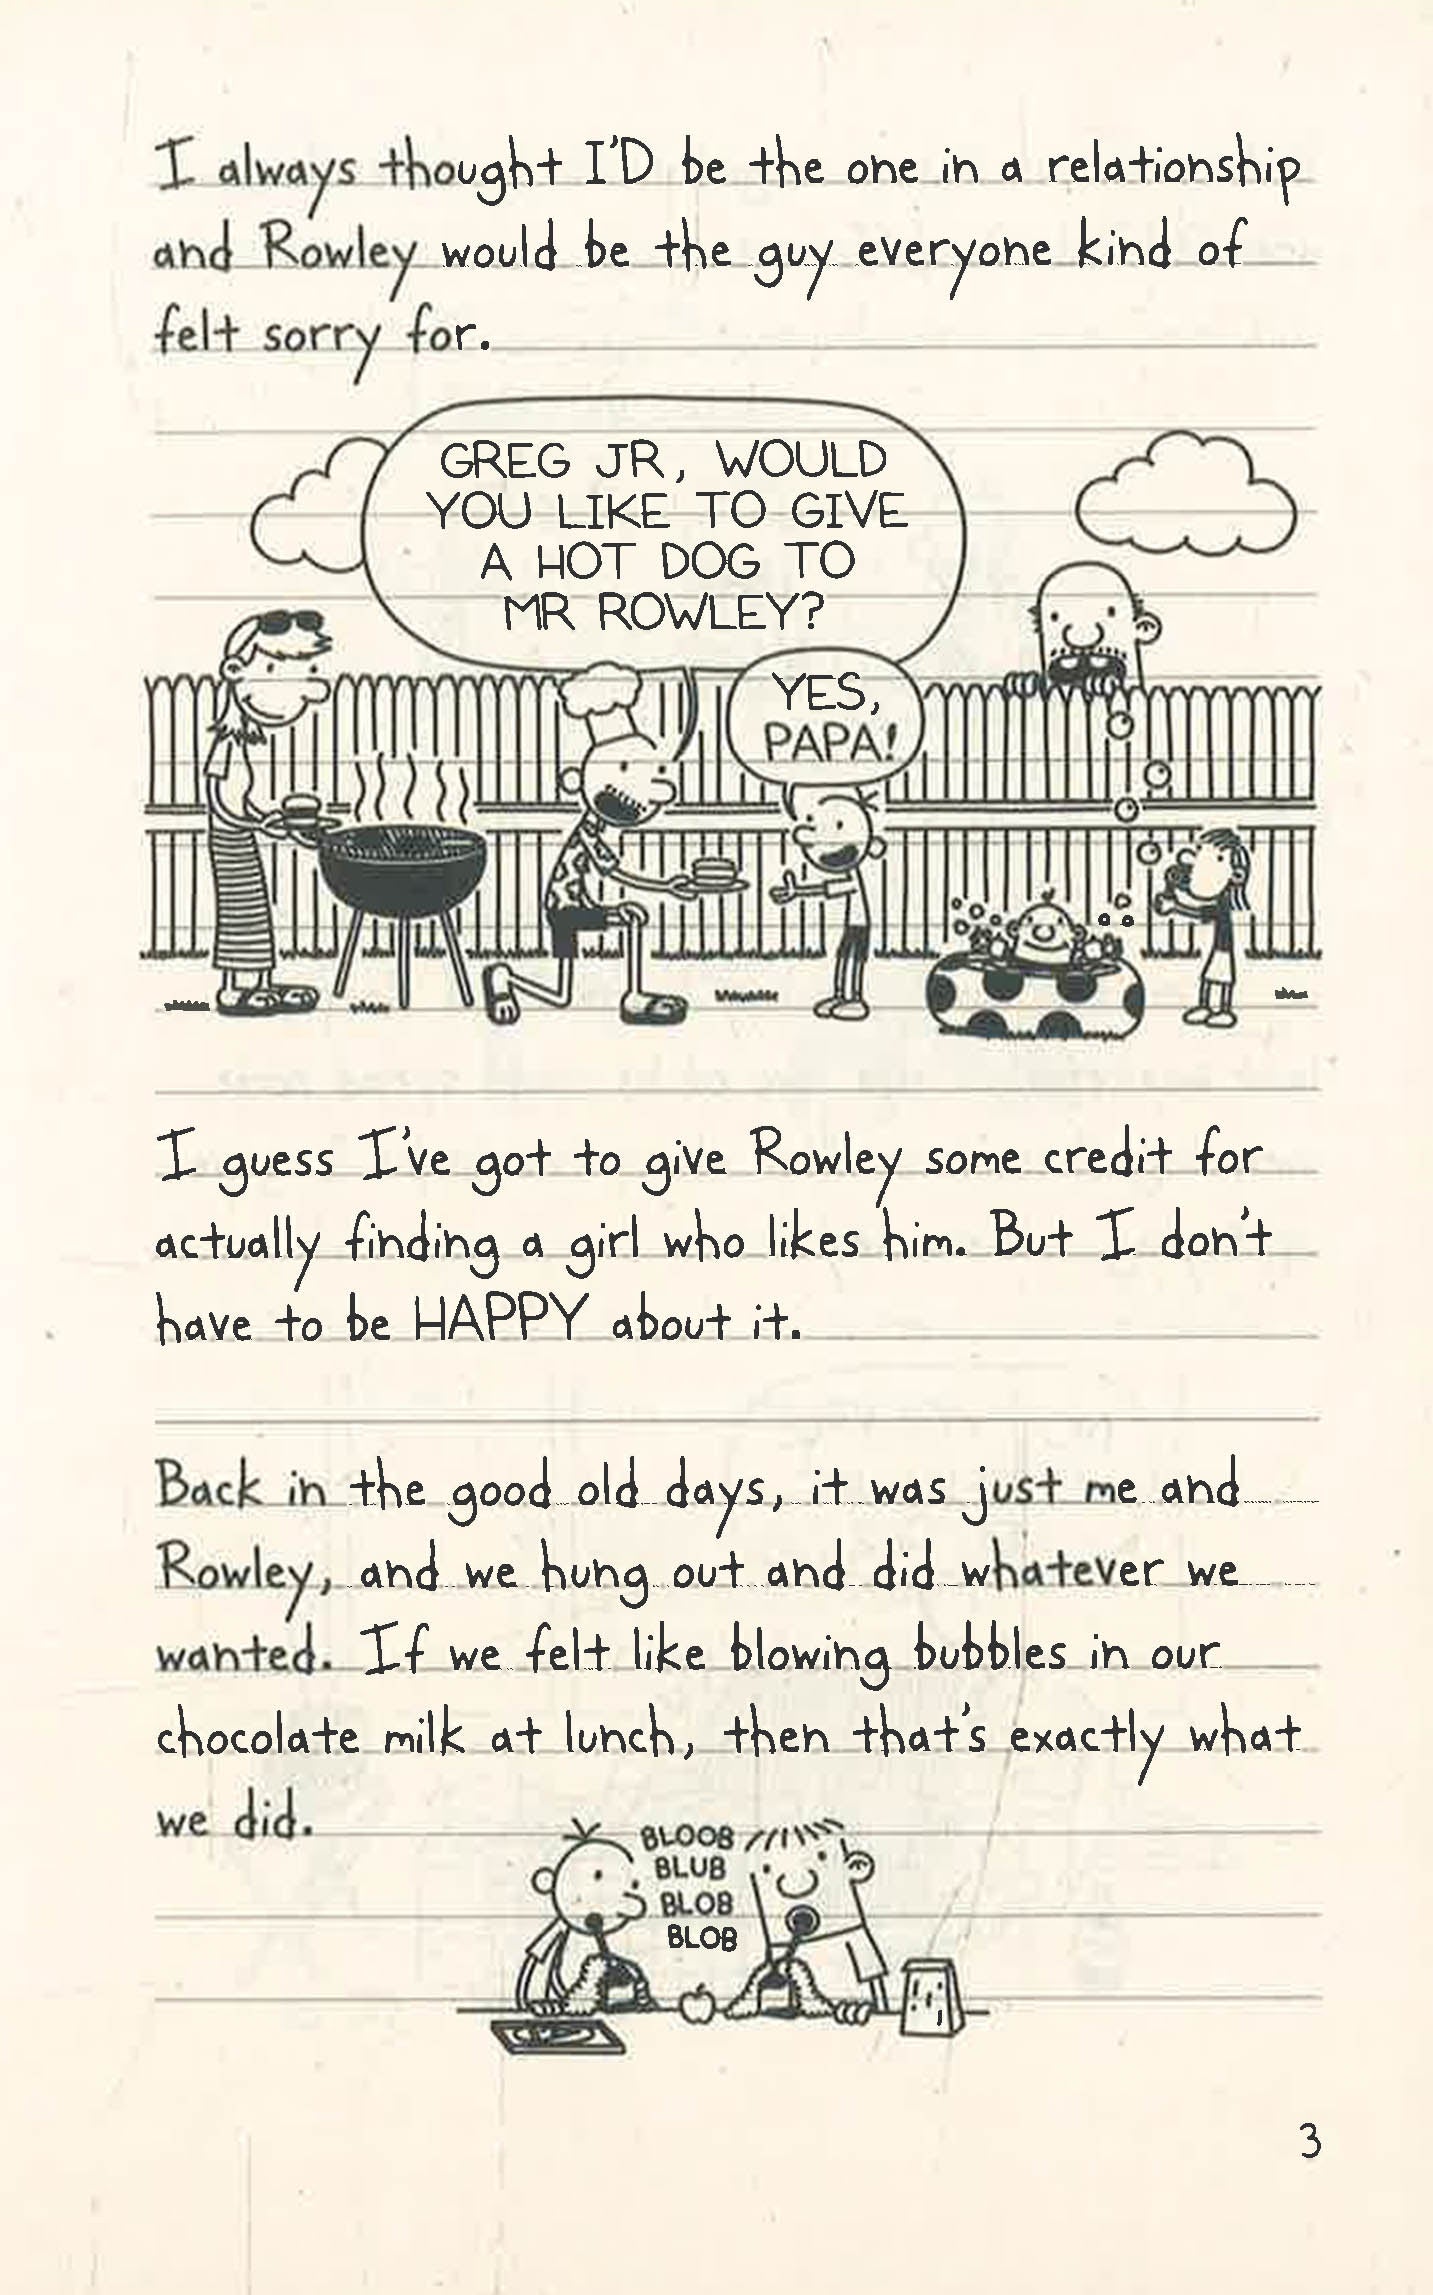 I always thought I'D be the one in a relationship
and Rowley would be the guy everyone kind of
felt sorry for.
GREG JR, WOULD
YOU LIKE TO GIVE
A HOT DOG TO
MR ROWLEY?
YES,
PAPA!
I guess I've got to give Rowley some credit for
actually finding a girl who likes him. But I don't
have to be HAPPY about it.
Back in the good old days, it was just me and
Rowley, and we hung out and did whatever we
wanted. If we felt like blowing bubbles in our
chocolate milk at lunch, then that's exactly what
we did.
BLOOB
BLUB
BLOB
BLOB
3